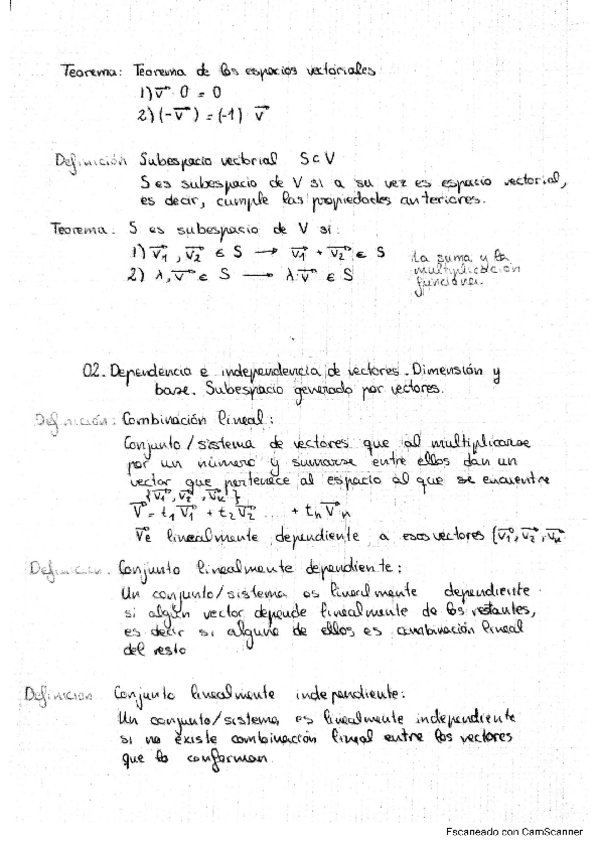 Teorema: Teorema de los espacios vectoriales
1) v⃗ · 0 = 0
2) (-v⃗) = (-1) · v⃗
Definición Subespacio vectorial S⊂V
S es subespacio de V si a su vez es espacio vectorial,
es decir, cumple las propiedades anteriores.
Teorema. S es subespacio de V si:
1) v⃗1, v⃗2 ∈ S → v⃗1 + v⃗2 ∈ S
2) λ, v⃗ ∈ S → λ·v⃗ ∈ S
la suma y la
multiplicación
funciona.
02. Dependencia e independencia de vectores. Dimensión y
base. Subespacio generado por vectores.
Definición: Combinación lineal:
Conjunto/sistema de vectores que al multiplicarse
por un número y sumarse entre ellos dan un
vector que pertenece al espacio al que se encuentre
{v⃗1, v⃗2, v⃗k}
v⃗ = t1 v⃗1 + t2 v⃗2 ... + tn v⃗n
linealmente dependiente a esos vectores {v⃗1, v⃗2, v⃗k
Definición. Conjunto linealmente dependiente:
Un conjunto/sistema es linealmente dependiente
si algún vector depende linealmente de los restantes,
es decir si alguno de ellos es combinación lineal
del resto
Definición Conjunto linealmente independiente:
Un conjunto/sistema es linealmente independiente
si no existe combinación lineal entre los vectores
que lo conforman.
Escaneado con CamScanner